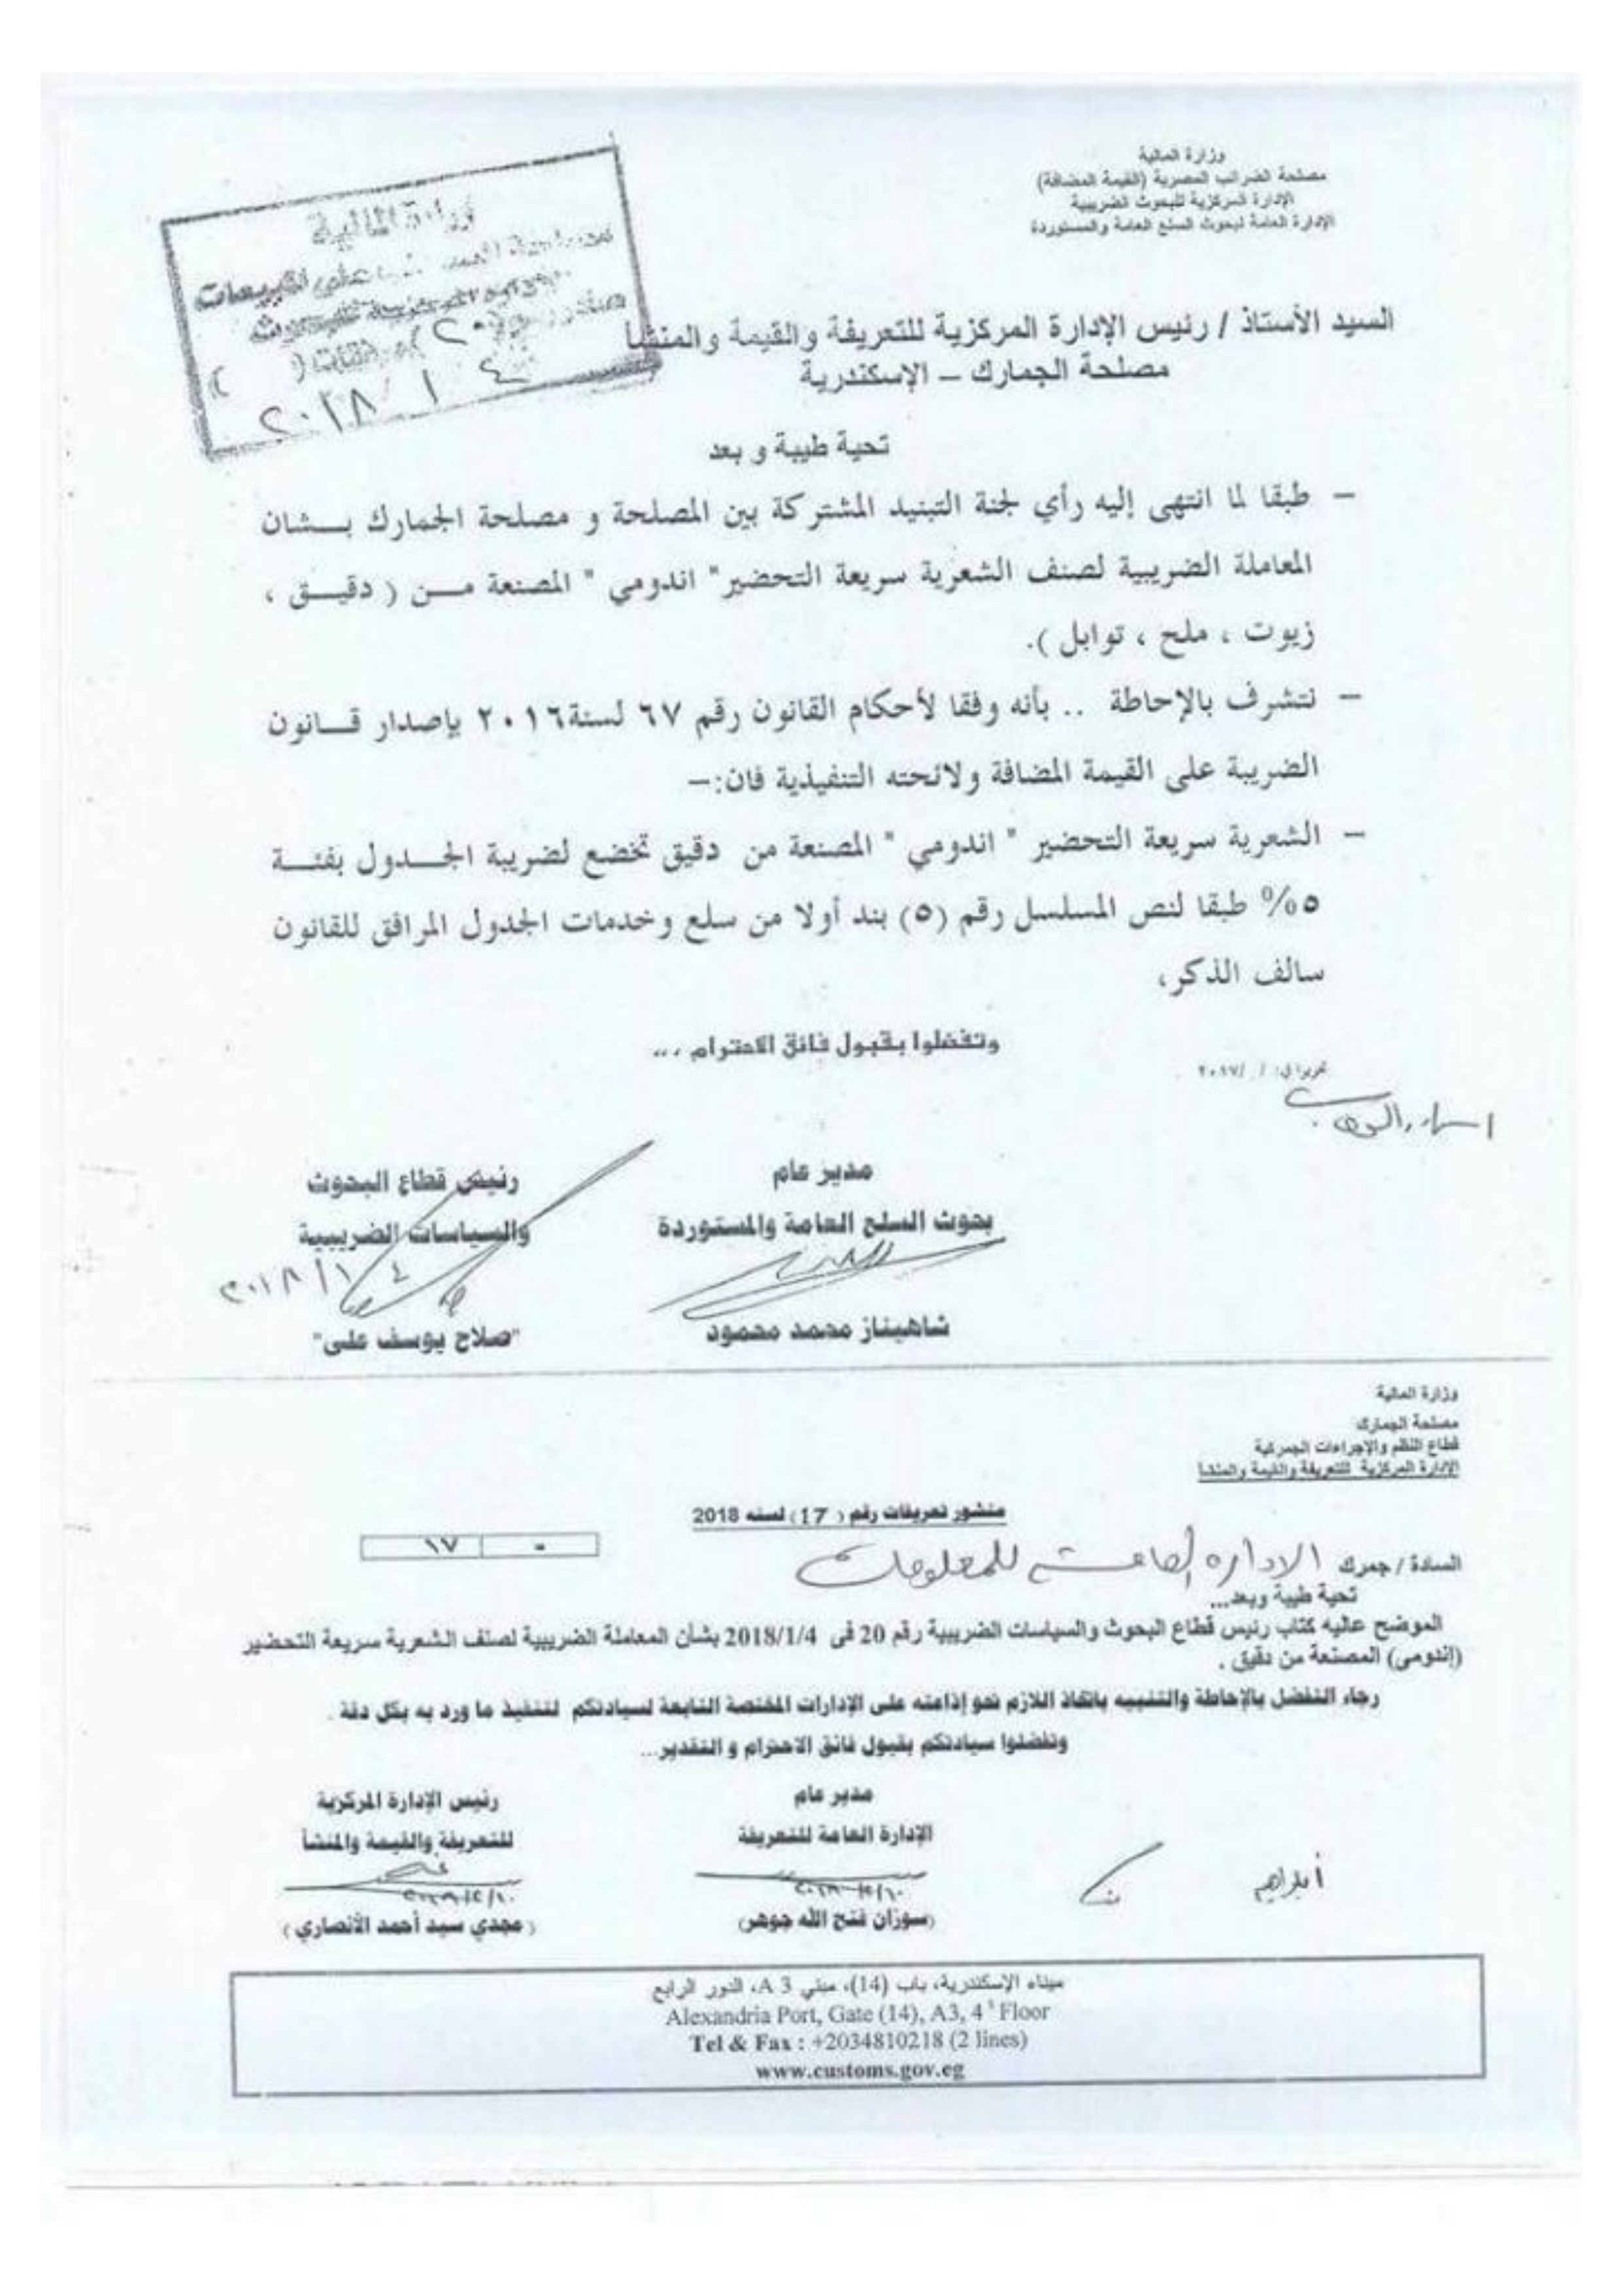 وزارة المالية
مصلحة الضرائب المصرية (القيمة المضافة)
الإدارة المركزية للبحوث الضريبية
الإدارة العامة لبحوث السلع العامة والمستوردة
وزارة المالية
على المبيعات
صادر رقم (٢٠)
٢٠١٨ / ١ / ٤
السيد الأستاذ / رئيس الإدارة المركزية للتعريفة والقيمة والمنشأ
مصلحة الجمارك – الإسكندرية
تحية طيبة و بعد
– طبقا لما انتهى إليه رأي لجنة التبنيد المشتركة بين المصلحة و مصلحة الجمارك بشان
المعاملة الضريبية لصنف الشعرية سريعة التحضير" اندومي " المصنعة من ( دقيق ،
زيوت ، ملح ، توابل ).
– نتشرف بالإحاطة .. بأنه وفقا لأحكام القانون رقم ٦٧ لسنة٢٠١٦ بإصدار قانون
الضريبة على القيمة المضافة ولائحته التنفيذية فان:–
– الشعرية سريعة التحضير " اندومي " المصنعة من دقيق تخضع لضريبة الجدول بفئة
٥% طبقا لنص المسلسل رقم (٥) بند أولا من سلع وخدمات الجدول المرافق للقانون
سالف الذكر،
وتفضلوا بقبول فائق الاحترام ،..
تحريرا في: / /٢٠١٧
مدير عام
بحوث السلع العامة والمستوردة
شاهيناز محمد محمود
رئيس قطاع البحوث
والسياسات الضريبية
٢٠١٨/١/٤
"صلاح يوسف على"
وزارة المالية
مصلحة الجمارك
قطاع النظم والإجراءات الجمركية
الإدارة المركزية للتعريفة والقيمة والمنشأ
منشور تعريفات رقم ( 17 ) لسنه 2018
١٧ -
السادة / جمرك الاداره العامة للمعلومات
تحية طيبة وبعد...
الموضح عاليه كتاب رئيس قطاع البحوث والسياسات الضريبية رقم 20 فى 2018/1/4 بشأن المعاملة الضريبية لصنف الشعرية سريعة التحضير
(إندومى) المصنعة من دقيق .
رجاء التفضل بالإحاطة والتنبيه باتخاذ اللازم نحو إذاعته على الإدارات المختصة التابعة لسيادتكم لتنفيذ ما ورد به بكل دقة .
وتفضلوا سيادتكم بقبول فائق الاحترام و التقدير...
مدير عام
الإدارة العامة للتعريفة
(سوزان فتح الله جوهر)
رئيس الإدارة المركزية
للتعريفة والقيمة والمنشأ
( مجدي سيد أحمد الأنصاري )
ميناء الإسكندرية، باب (14)، مبني A 3، الدور الرابع
Alexandria Port, Gate (14), A3, 4 Floor
Tel & Fax : +2034810218 (2 lines)
www.customs.gov.eg